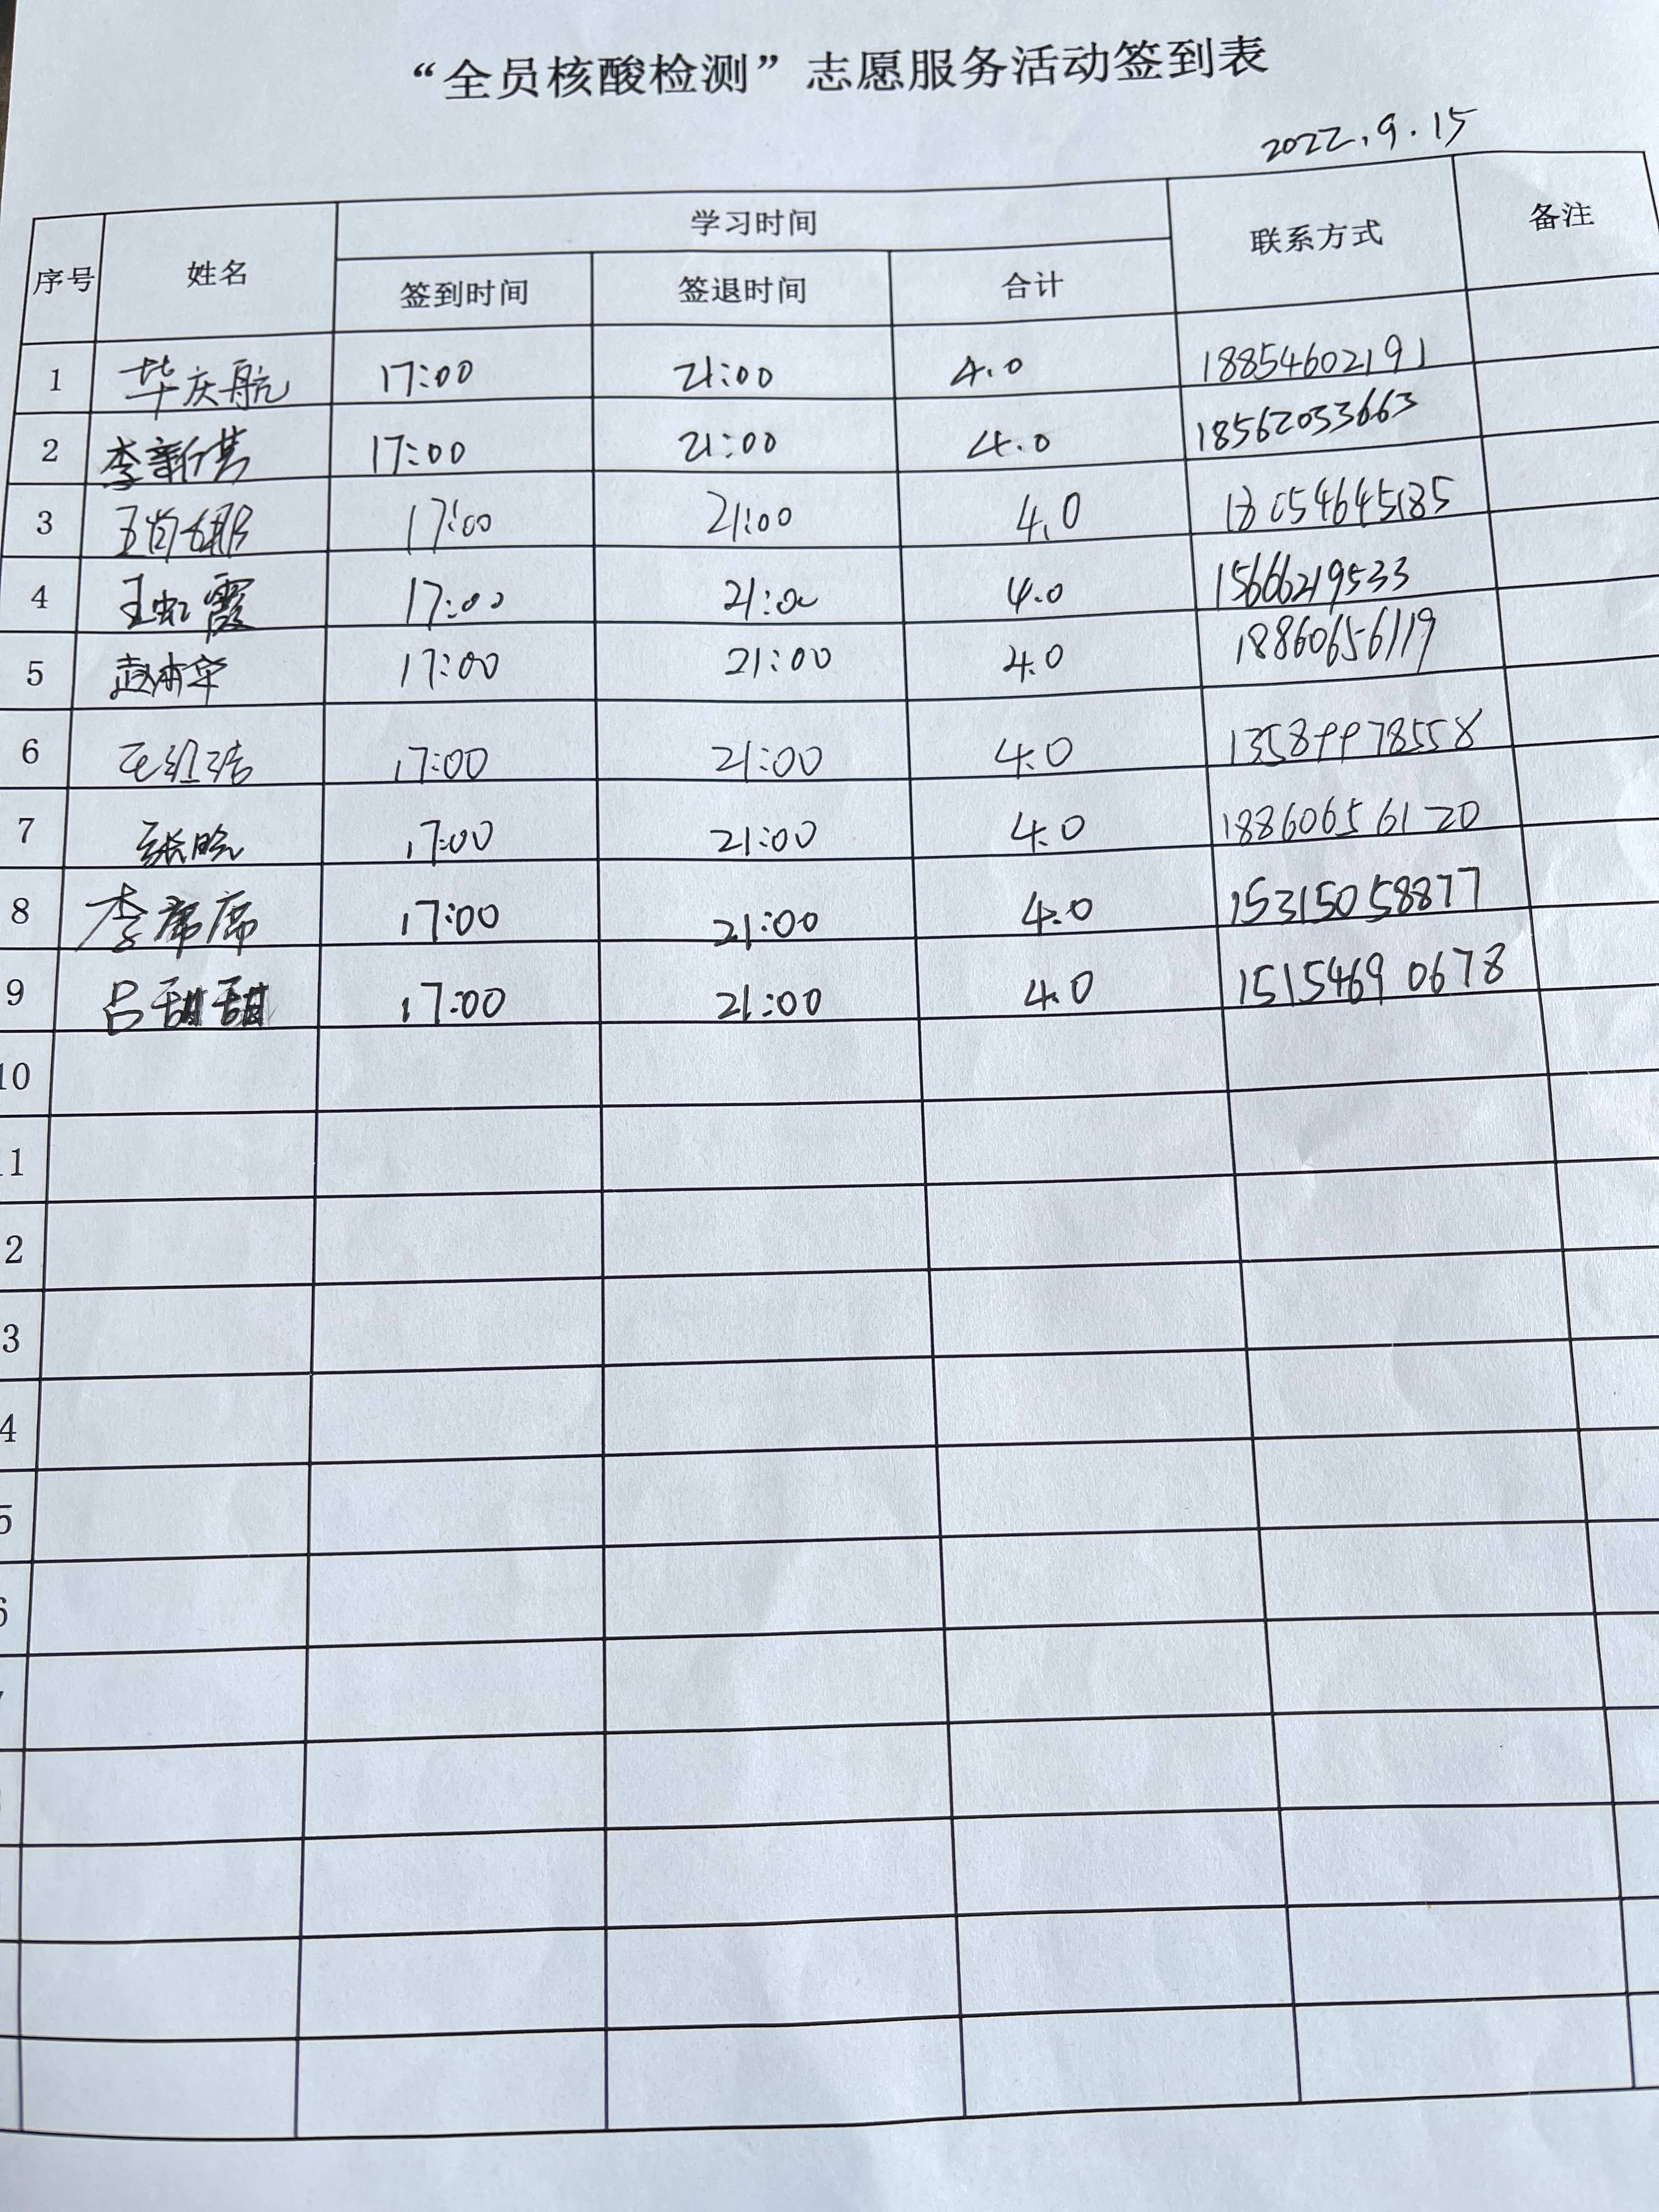 “全员核酸检测”志愿服务活动签到表
2022.9.15
序号 姓名 学习时间 联系方式 备注
签到时间 签退时间 合计
1 毕庆航 17:00 21:00 4.0 18854602191
2 李新 17:00 21:00 4.0 18562033663
3 王 17:00 21:00 4.0 18054645185
4 王虹霞 17:00 21:00 4.0 15666219533
5 赵 17:00 21:00 4.0 18860656119
6 17:00 21:00 4.0 13589978558
7 张晗 17:00 21:00 4.0 18860656120
8 李席席 17:00 21:00 4.0 15315058877
9 吕甜甜 17:00 21:00 4.0 15154690678
10
11
2
3
4
5
6